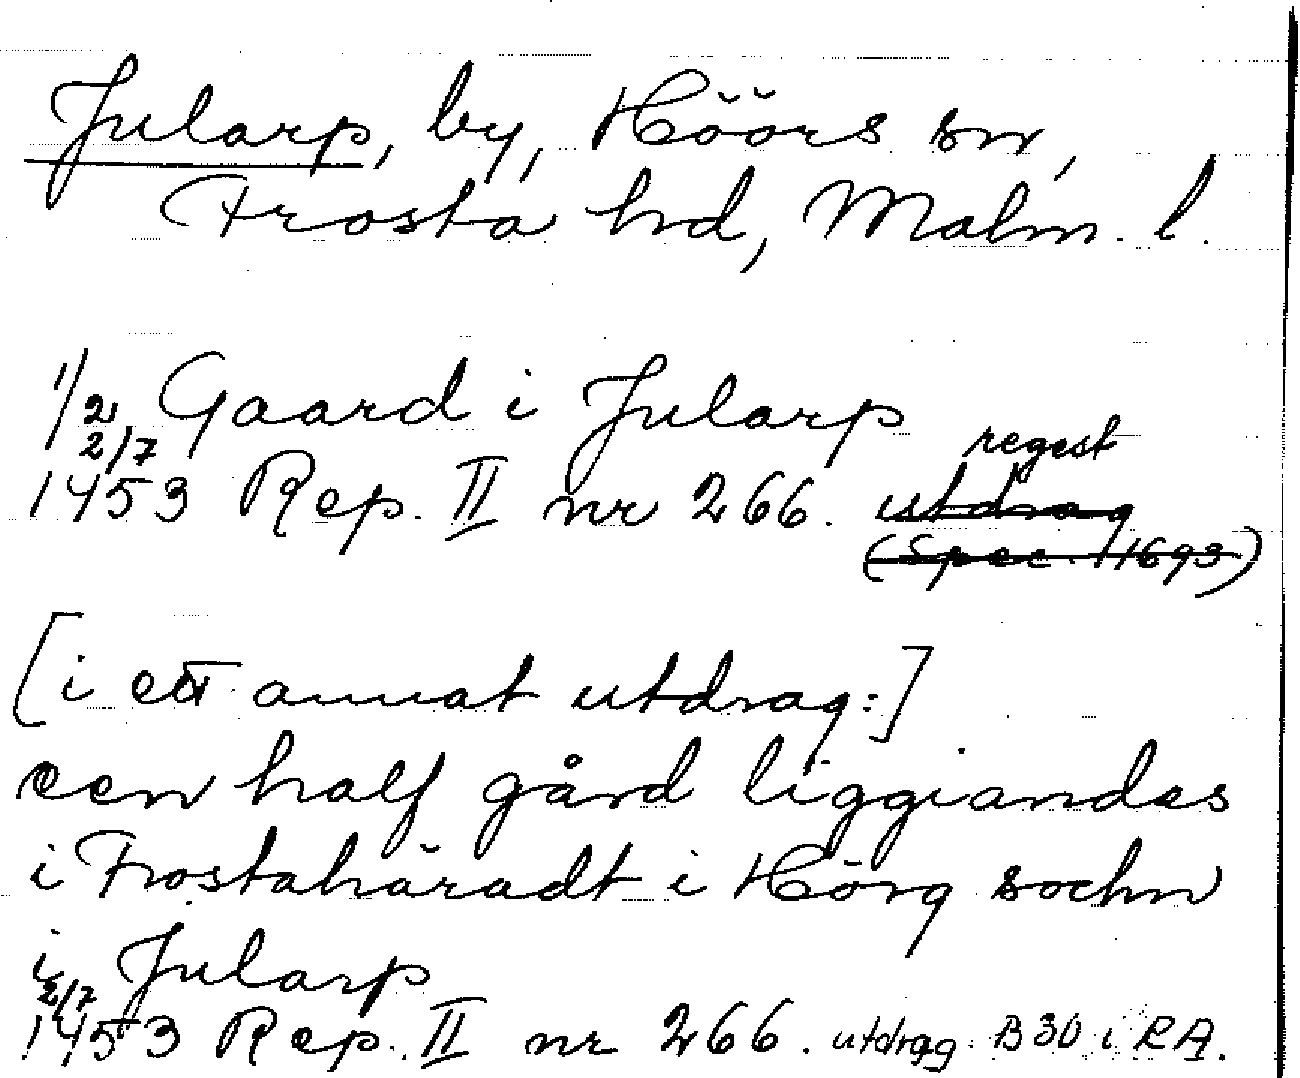 Jularp, by, Höörs sn,
Frosta hd, Malm. l.
1/2 Gaard i Jularp
2/7 1453 Rep. II nr 266. regest
utdrag
(Spec. 1693)
[i ett annat utdrag:]
een half gård liggiandes
i Frostahäradt i Hörg sochn
i Jularp
2/7 1453 Rep. II nr 266. utdrag. B 30 i RA.